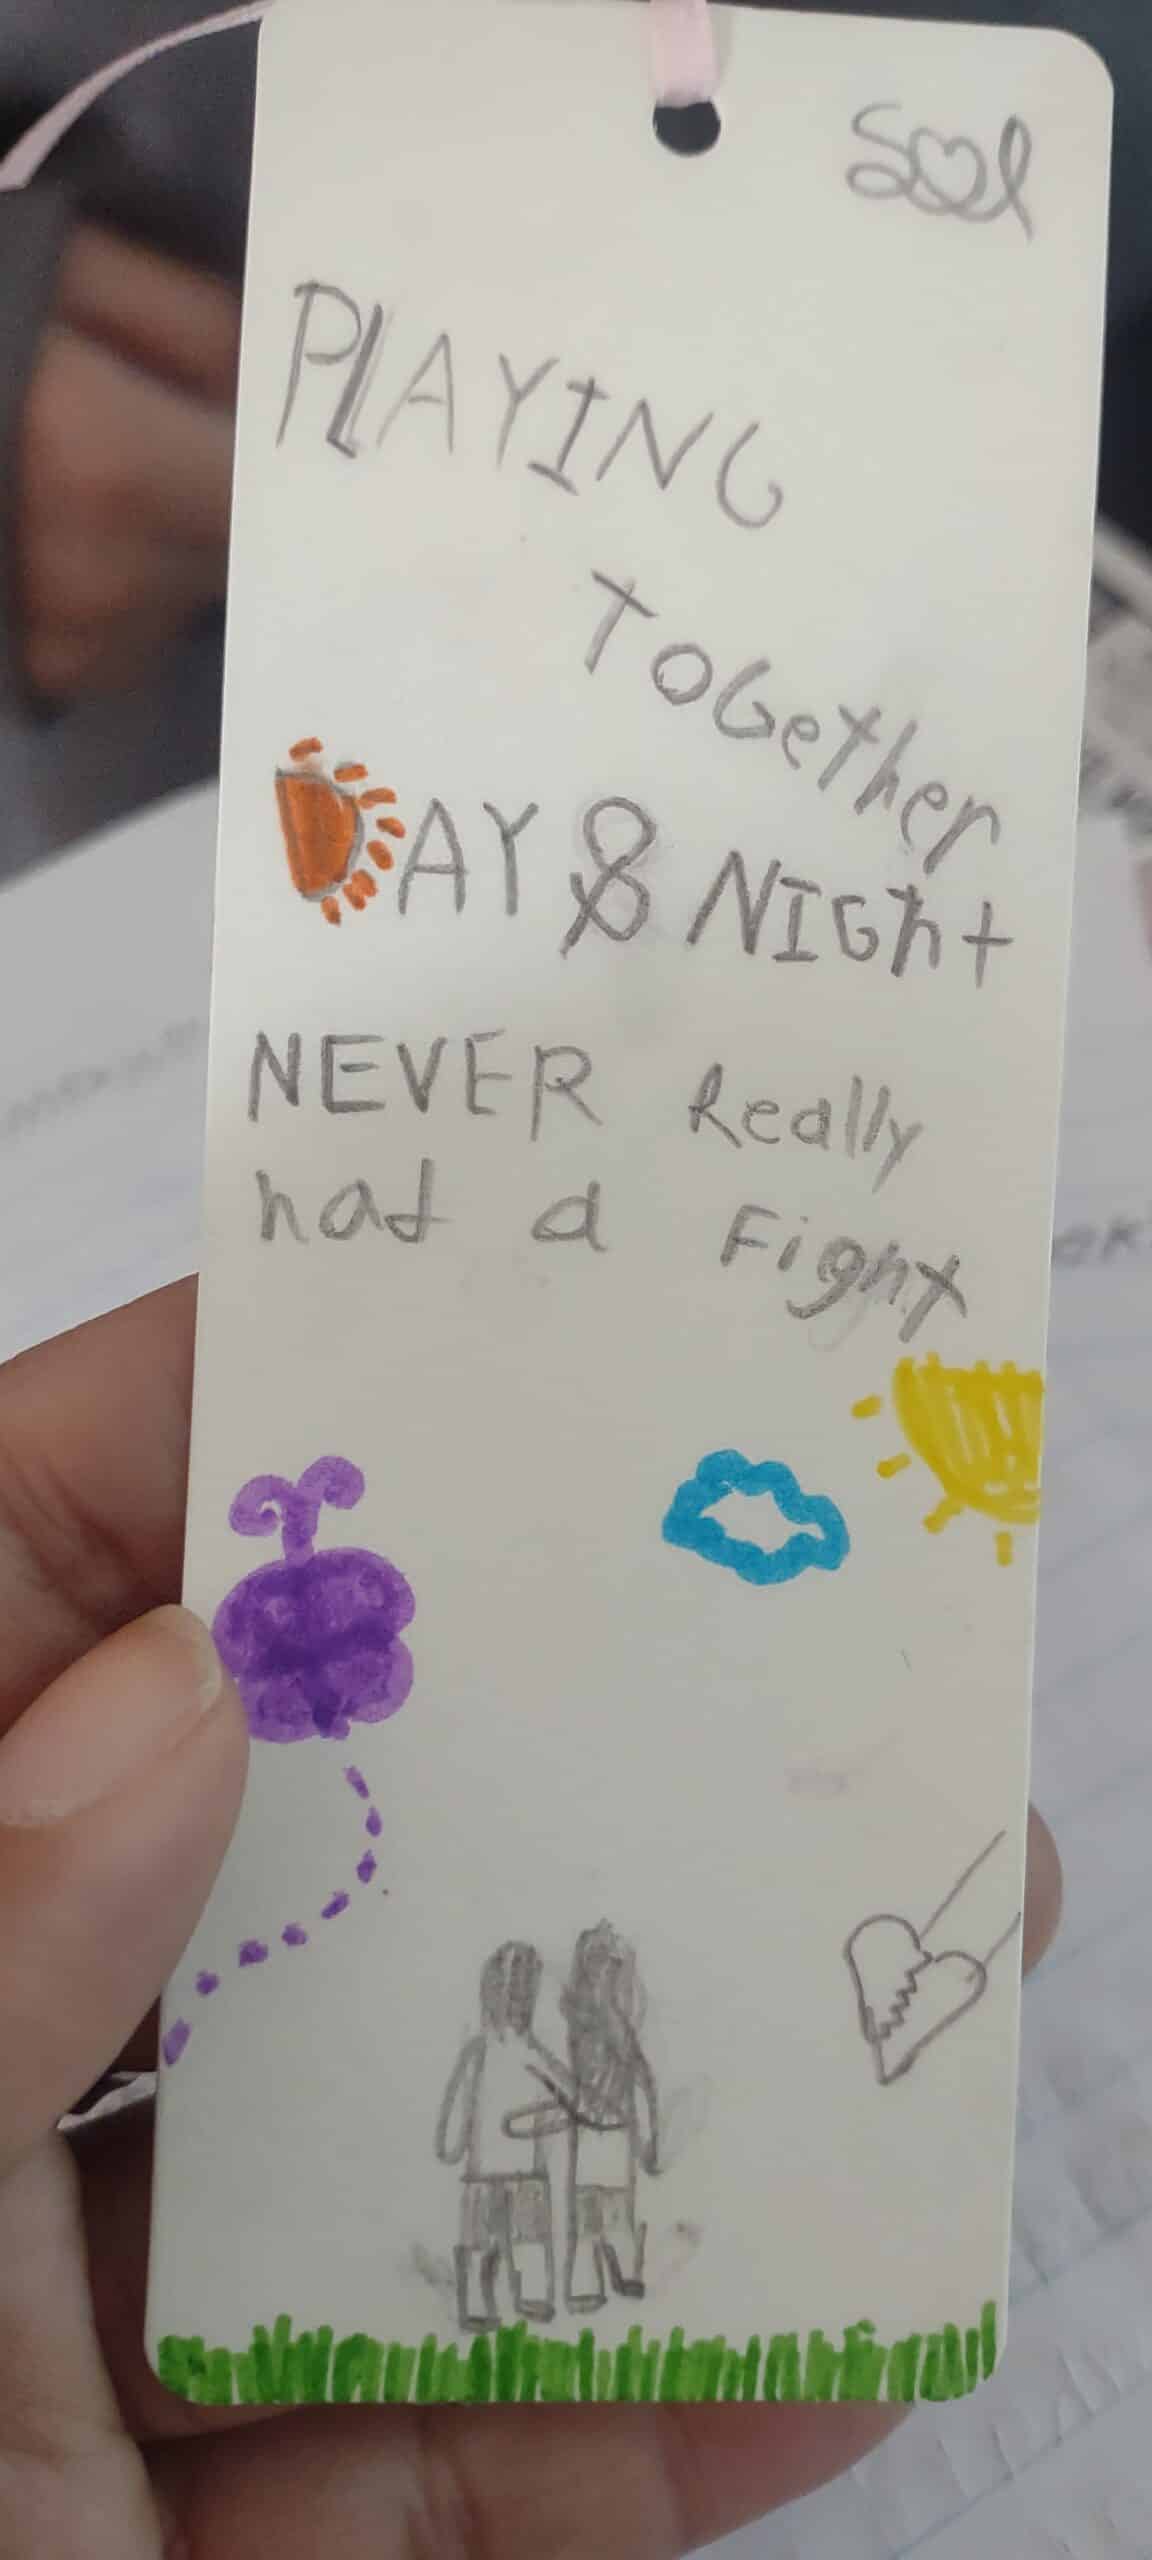 Sol
PLAYING
ToGether
DAY & NIGht
NEVER Really
had a Fight